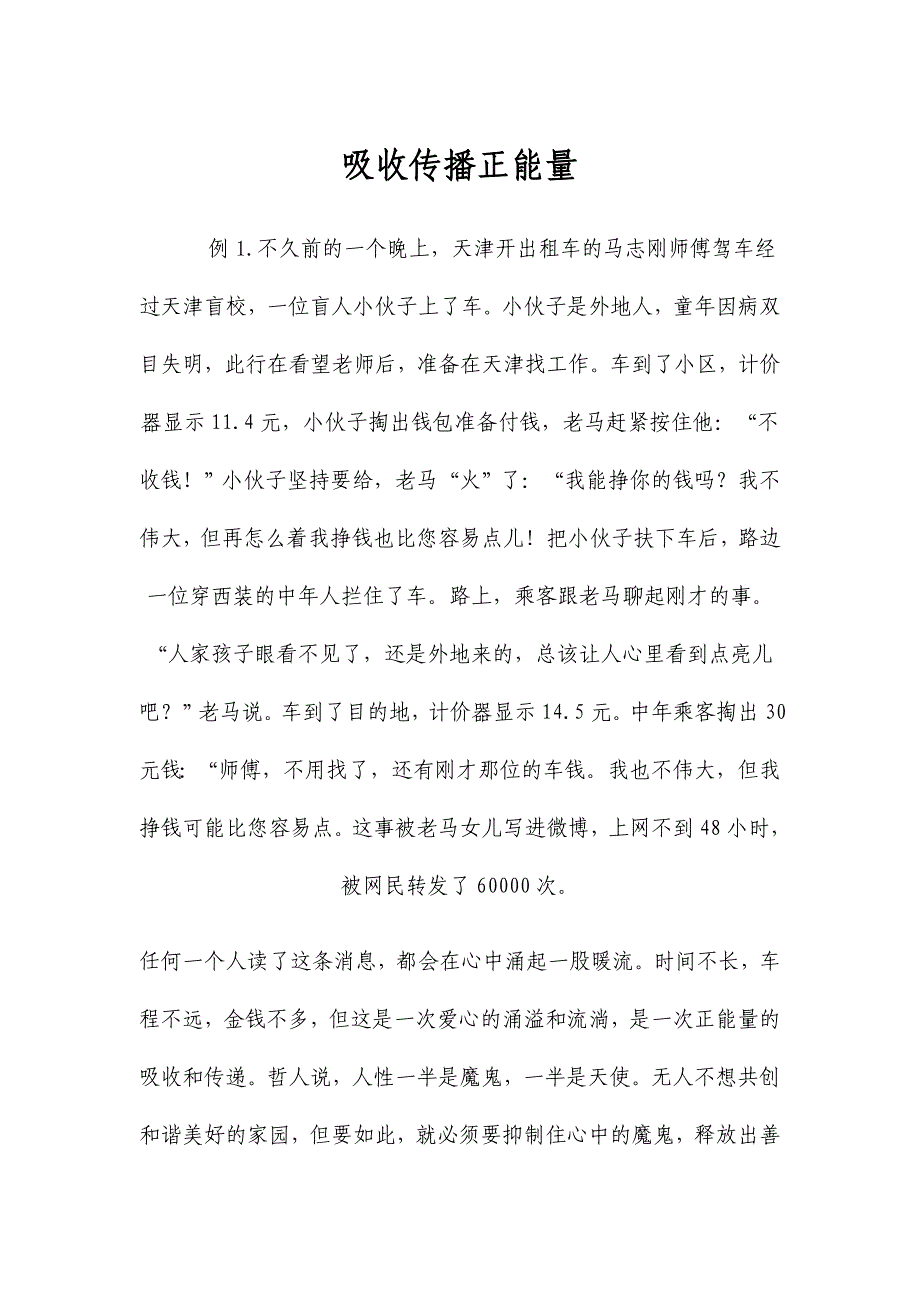 吸收传播正能量
例 1.不久前的一个晚上，天津开出租车的马志刚师傅驾车经
过天津盲校，一位盲人小伙子上了车。小伙子是外地人，童年因病双
目失明，此行在看望老师后，准备在天津找工作。车到了小区，计价
器显示 11.4 元，小伙子掏出钱包准备付钱，老马赶紧按住他：“不
收钱！”小伙子坚持要给，老马“火”了：“我能挣你的钱吗？我不
伟大，但再怎么着我挣钱也比您容易点儿！把小伙子扶下车后，路边
一位穿西装的中年人拦住了车。路上，乘客跟老马聊起刚才的事。
“人家孩子眼看不见了，还是外地来的，总该让人心里看到点亮儿
吧？”老马说。车到了目的地，计价器显示 14.5 元。中年乘客掏出 30
元钱：“师傅，不用找了，还有刚才那位的车钱。我也不伟大，但我
挣钱可能比您容易点。这事被老马女儿写进微博，上网不到 48 小时，
被网民转发了 60000 次。
任何一个人读了这条消息，都会在心中涌起一股暖流。时间不长，车
程不远，金钱不多，但这是一次爱心的涌溢和流淌，是一次正能量的
吸收和传递。哲人说，人性一半是魔鬼，一半是天使。无人不想共创
和谐美好的家园，但要如此，就必须要抑制住心中的魔鬼，释放出善